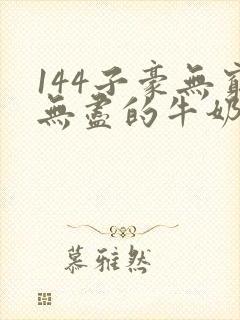 144子豪無窮
無盡的牛奶
慕雅然